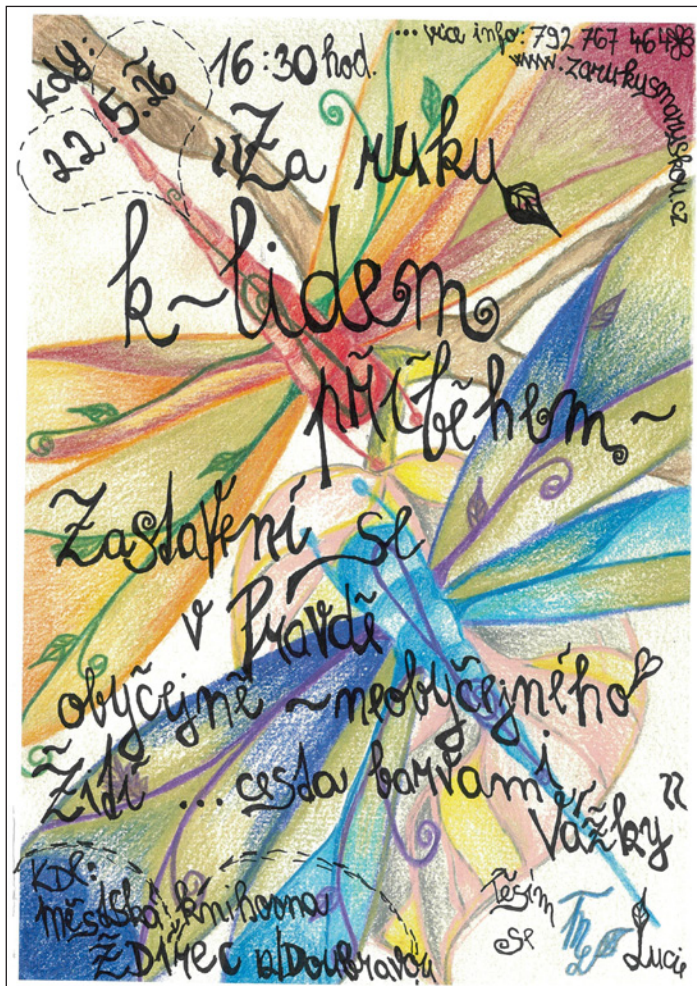 kdy:
22.5.26
16:30 hod.
... více info: 792 767 464
www.zarukysmaryskou.cz
"Za ruku
k~lidem
příběhem ~
Zastavení se
v Pravdě
obyčejně ~ neobyčejného
Žití ... cesta barvami
Vážky"
KDE:
Městská knihovna
ŽDÍREC n/Doubravou
Těším
se
Lucie